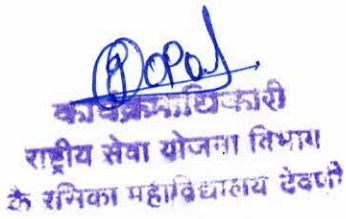 कार्यक्रमाधिकारी
राष्ट्रीय सेवा योजना विभाग
कै रसिका महाविद्यालय देवणी